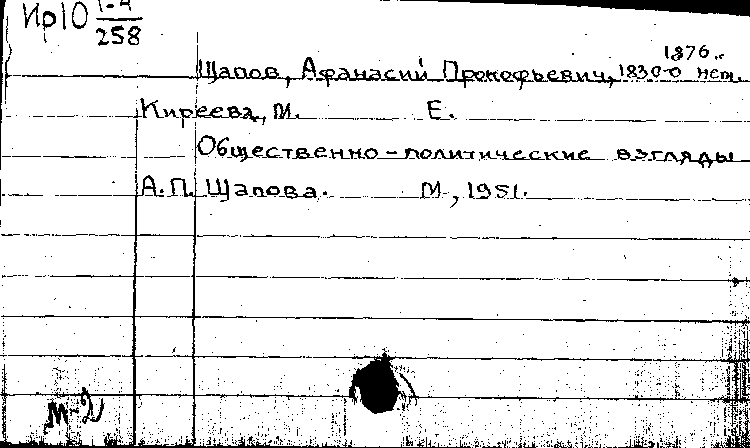 Ир10 1-4
258
1876..
Щапов, Афанасий Прокофьевич, 1830-о ист.
Киреева, М. Е.
Общественно-политические взгляды
А.П. Щапова. М, 1951.
М-2